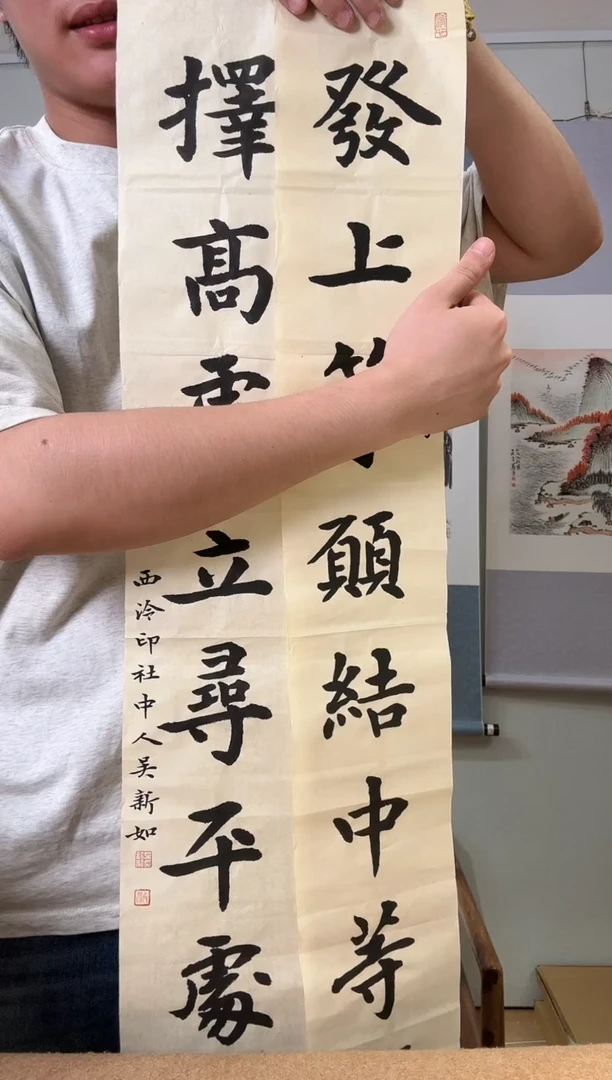 發上願結中等
擇髙立尋平處
西泠印社中人吴新如